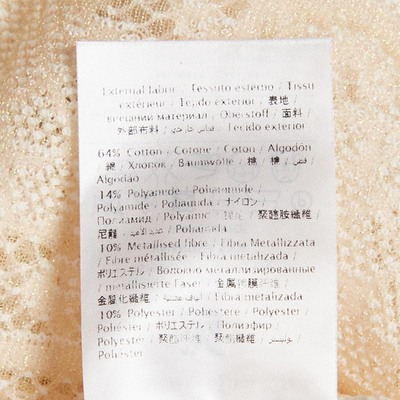 External fabric / Tessuto esterno / Tissu
extérieur / Tejido exterior / 表地 /
внешний материал / Oberstoff / 面料 /
外部布料 / قماش خارجي / Tecido exterior
64% Cotton / Cotone / Coton / Algodón
綿 / Хлопок / Baumwolle / 棉 / 棉 / قطن /
Algodão
14% Polyamide / Poliammide /
Polyamide / Poliamida / ナイロン /
Полиамид / Polyamid / / 聚醯胺纖維 /
尼龍 / / Poliamida
10% Metallised fibre / Fibra Metallizzata
/ Fibre métallisée / Fibra metalizada /
ポリエステル / Волокно металлизированные
/ metallisierte Faser / 金属镀膜纤维 /
金屬化纖維 / / Fibra metalizada
10% Polyester / Poliestere / Polyester /
Poliéster / ポリエステル / Полиэфир /
Polyester / 聚酯纤维 / 聚酯纖維 / بوليستر /
Poliéster